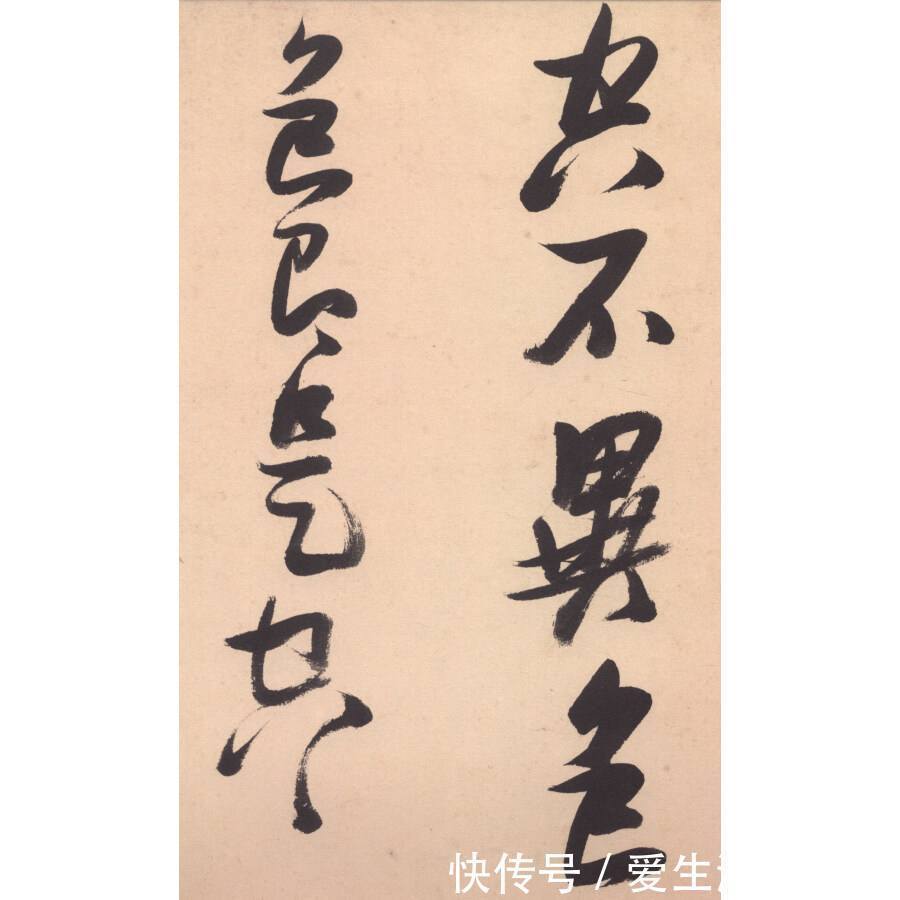 空不異色
色即是空
快传号 / 爱生